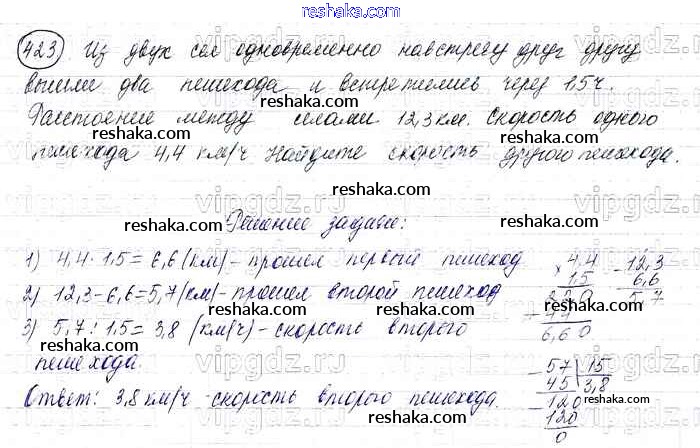 reshaka.com
423) Из двух сел одновременно навстречу друг другу
вышли два пешехода и встретились через 1,5 ч.
reshaka.com reshaka.com
Расстояние между селами 12,3 км. Скорость одного
пешехода 4,4 км/ч. Найдите скорость другого пешехода.
reshaka.com reshaka.com
Решение задачи:
1) 4,4 · 1,5 = 6,6 (км) - прошел первый пешеход
2) 12,3 - 6,6 = 5,7 (км) - прошел второй пешеход
3) 5,7 : 1,5 = 3,8 (км/ч) - скорость второго
пешехода.
Ответ: 3,8 км/ч - скорость второго пешехода.
× 4,4
1,5
+ 220
44
6,60
- 12,3
6,6
5,7
- 57 | 15
45 | 3,8
- 120
120
0
reshaka.com reshaka.com
reshaka.com reshaka.com
reshaka.com reshaka.com
vipgdz.ru